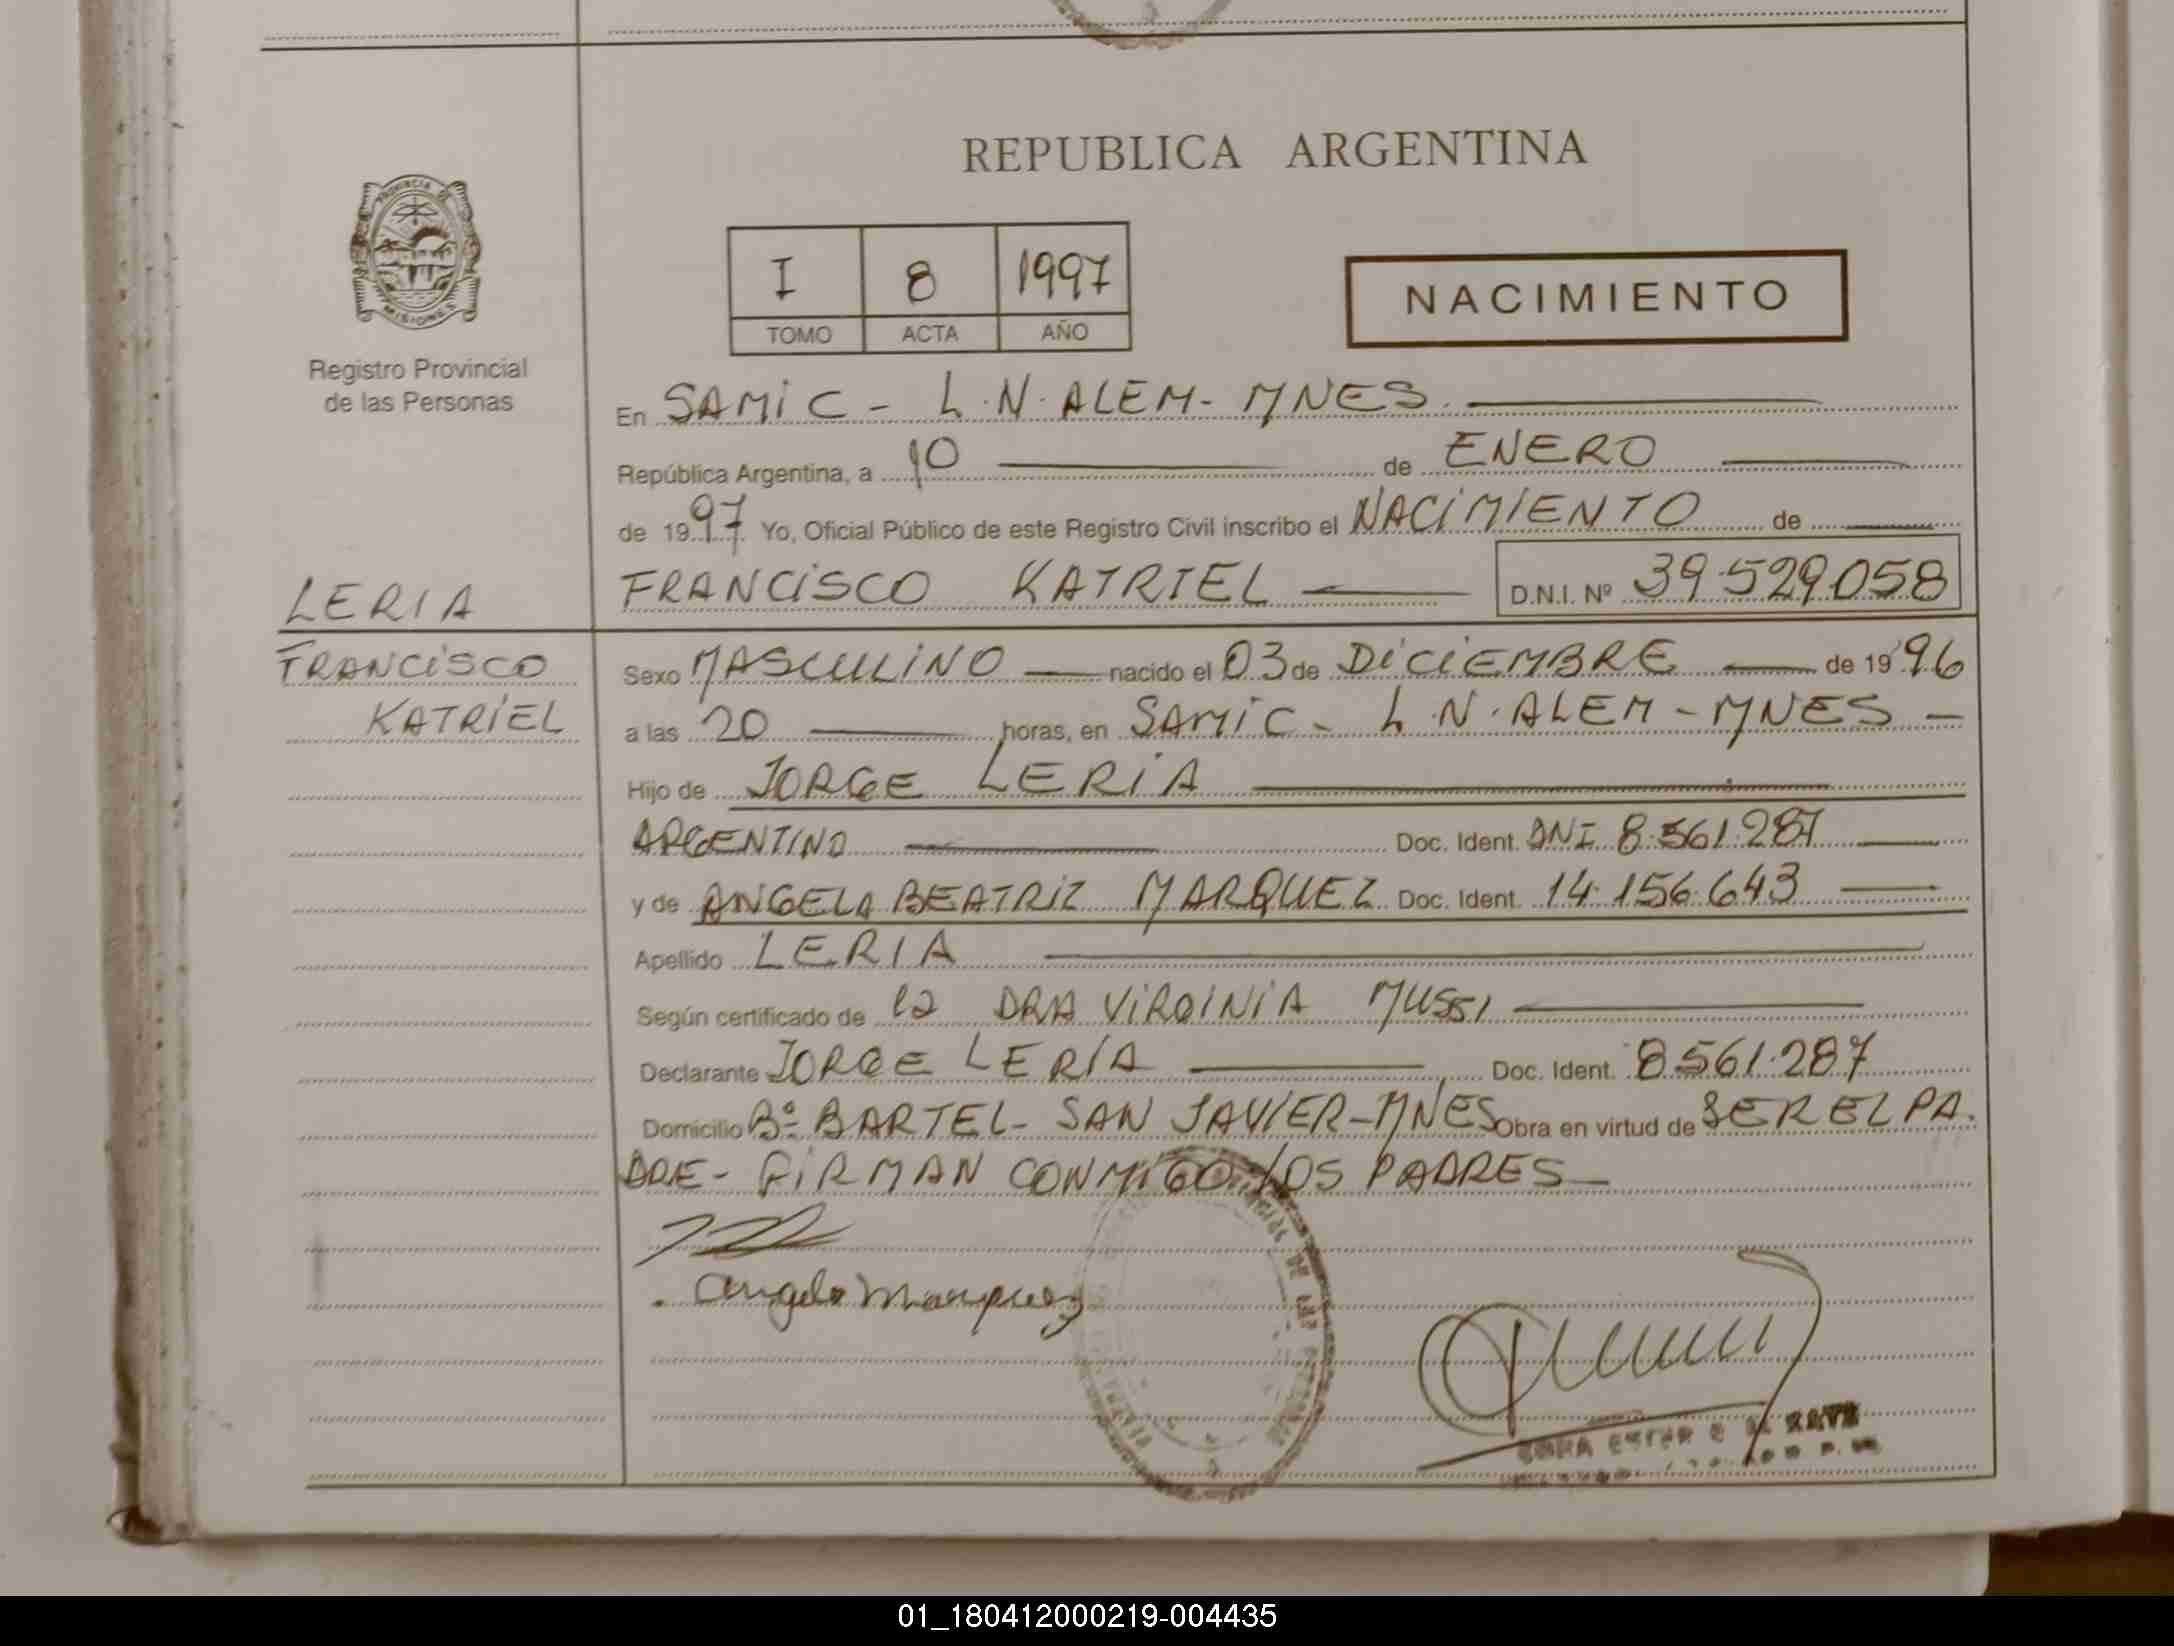 REPUBLICA ARGENTINA
PROVINCIA DE
MISIONES
I 8 1997
TOMO ACTA AÑO
NACIMIENTO
Registro Provincial
de las Personas
En SAMIC - L.N. ALEM - MNES.
República Argentina, a 10 de ENERO
de 1997 Yo, Oficial Público de este Registro Civil inscribo el NACIMIENTO de
LERIA FRANCISCO KATRIEL D.N.I. Nº 39.529.058
FRANCISCO Sexo MASCULINO nacido el 03 de DICIEMBRE de 1996
KATRIEL a las 20 horas, en SAMIC - L.N. ALEM - MNES -
Hijo de JORGE LERIA
ARGENTINO Doc. Ident. DNI 8.561.287
y de ANGELA BEATRIZ MARQUEZ Doc. Ident. 14.156.643
Apellido LERIA
Según certificado de la DRA VIRGINIA MUSSI
Declarante JORGE LERIA Doc. Ident. 8.561.287
Domicilio Bº BARTEL - SAN JAVIER - MNES Obra en virtud de SER EL PA.
DRE - FIRMAN CONMIGO LOS PADRES -
Angela Marquez
01_180412000219-004435